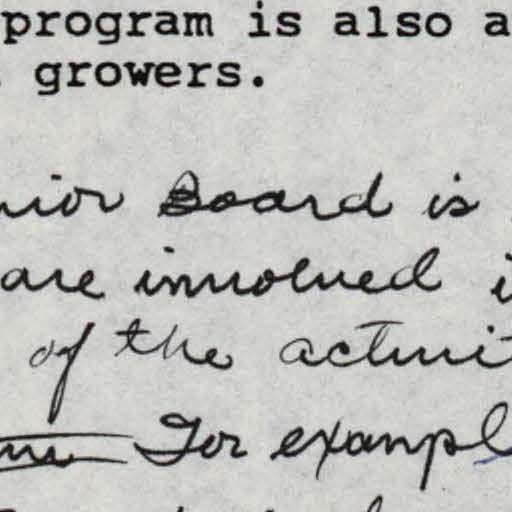 program is also a
growers.
nior Board is
are involved i
of the activit
For exampl